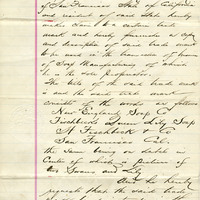 of San Francisco State of California
and resident of said State hereby
make claim to a certain trade
mark and hereby furnishes a copy
and description of said trade mark
to be used in the business of
of Soap Manufacturing of which
he is the sole proprietor.
The title of the said trade mark
is and the said trade mark
consists of the words as follows
New England Soap Co
Fischbeck's Queen Lily Soap
A Fischbeck & Co
San Francisco Cal.
the same being or
Centre of which a picture of
two Swans and Lily
And he hereby
requests that the said trade